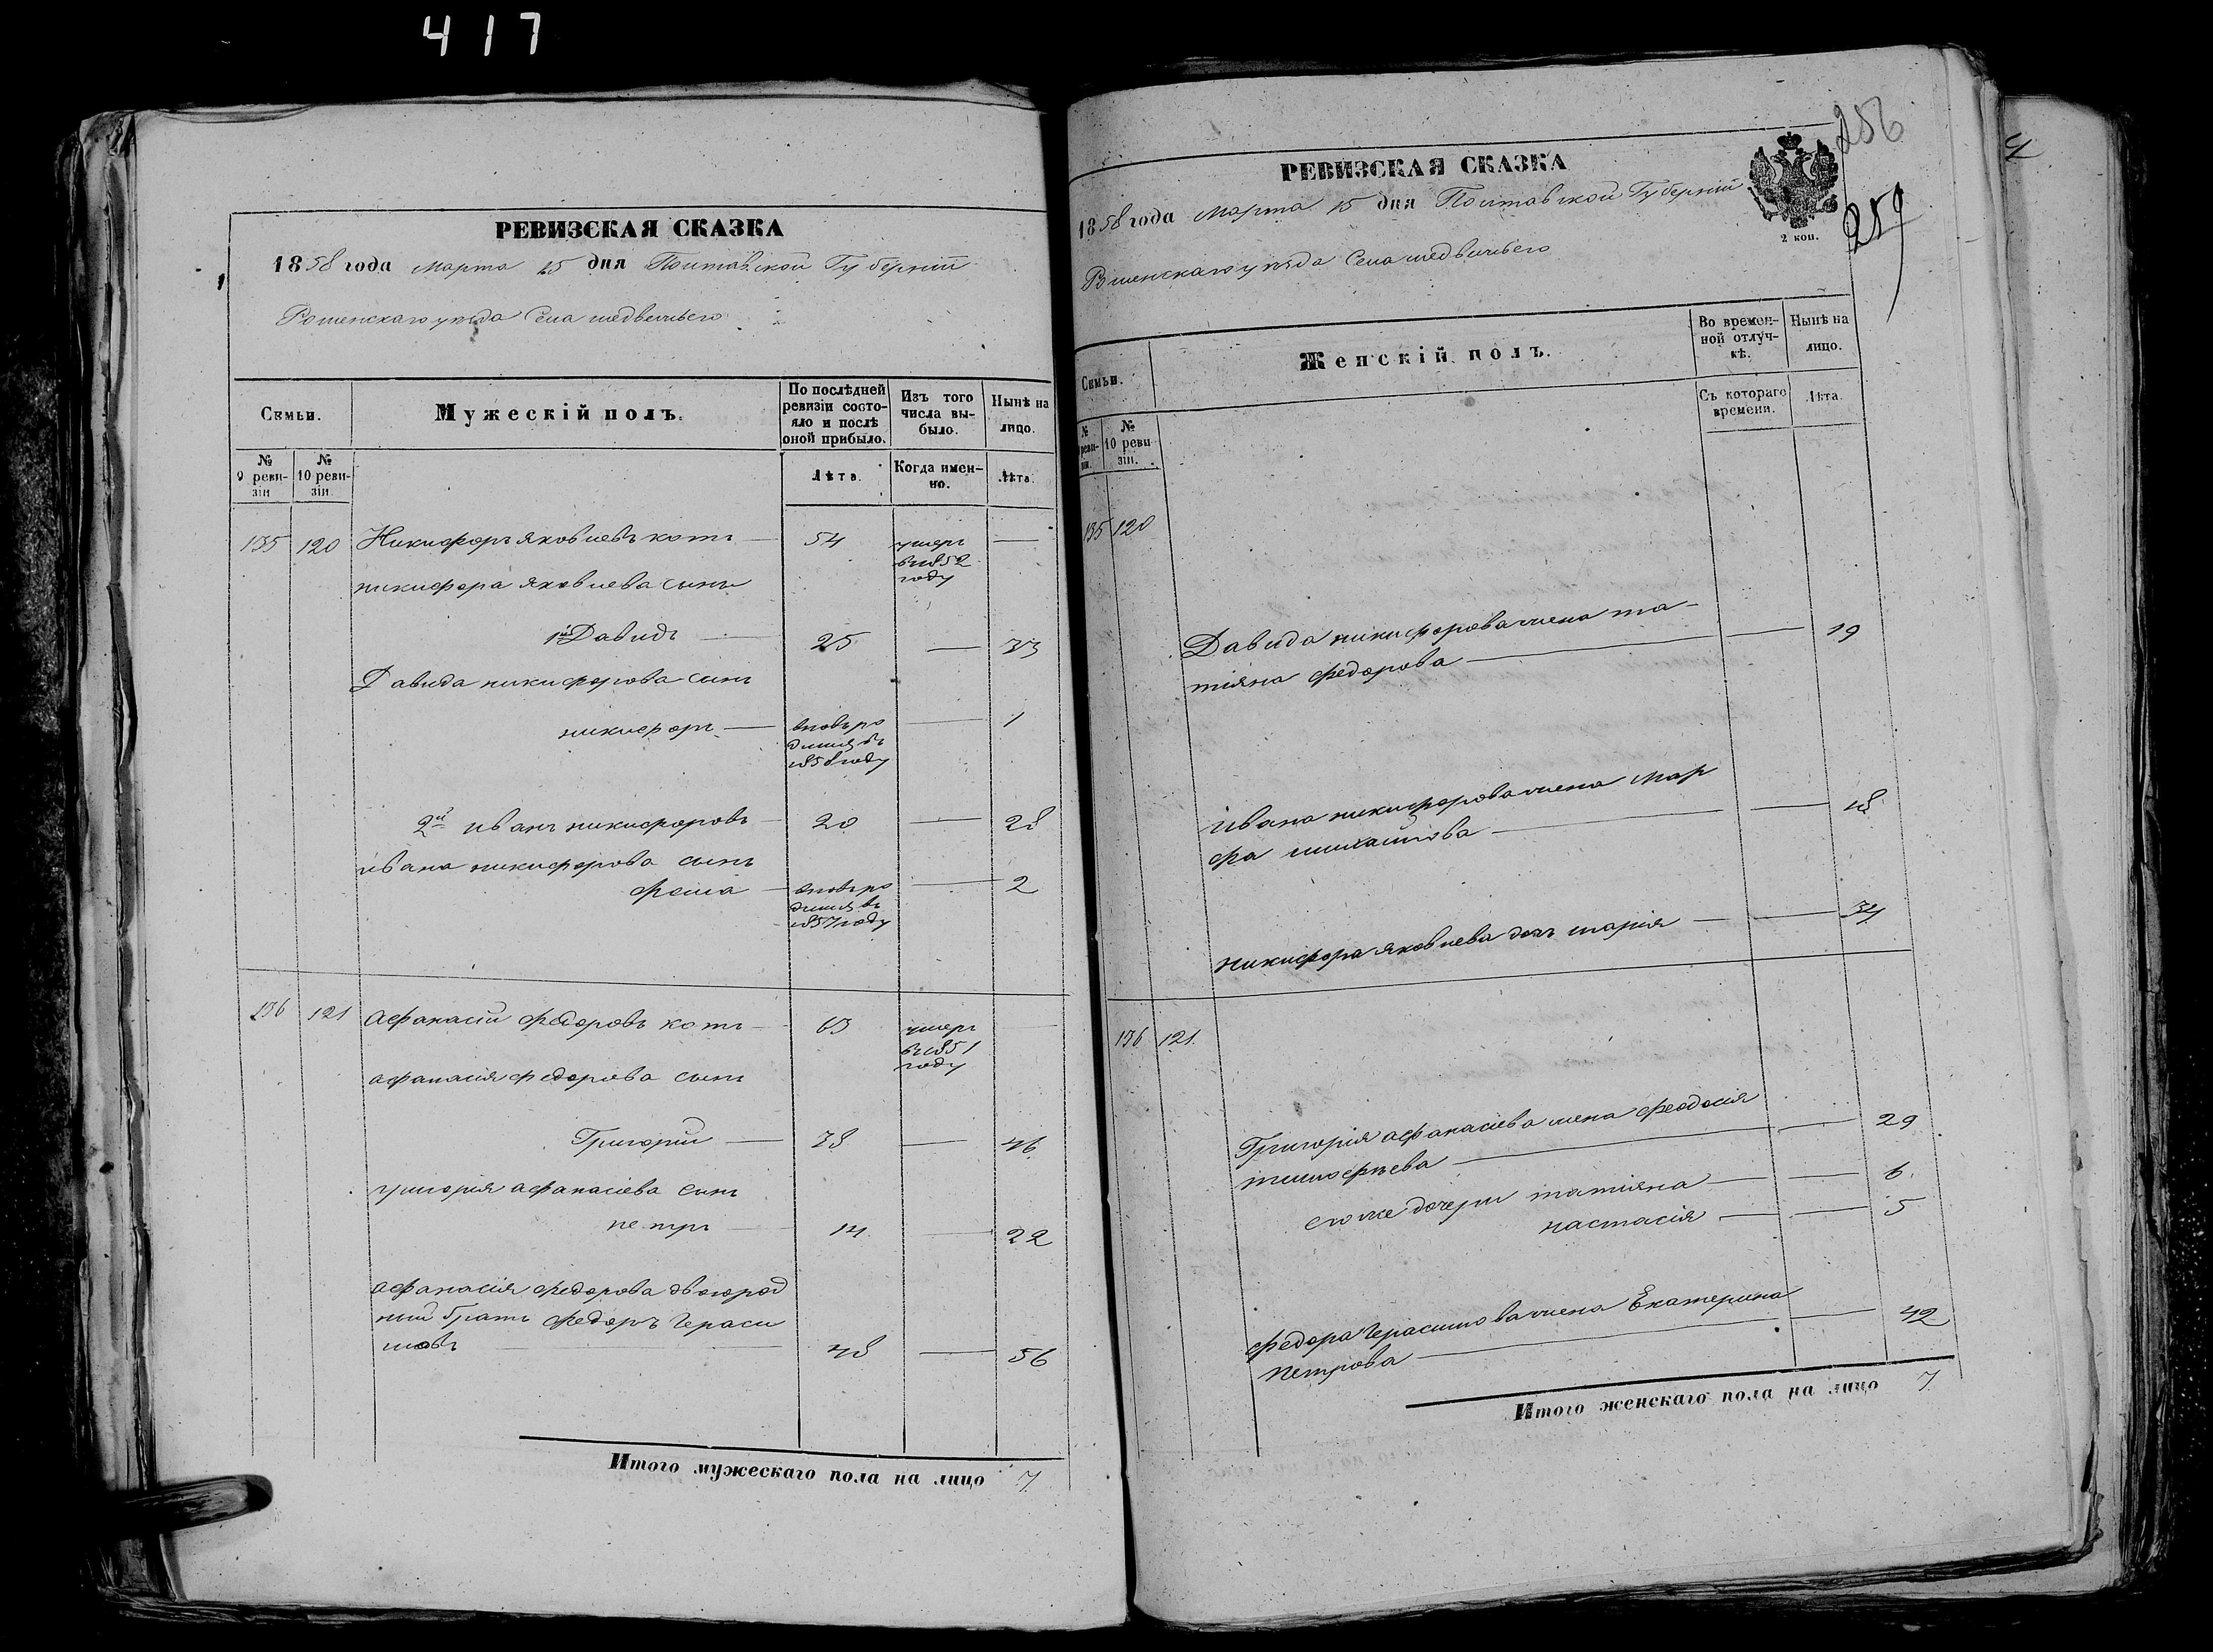 417
РЕВИЗСКАЯ СКАЗКА
1858 года Марта 15 дня Полтавской Губерніи
Роменскаго уезда Села Медвежьего
Семьи.
Мужескій полъ.
По послѣдней ревизіи состо-
яло и послѣ
оной прибыло.
Изъ того
числа вы-
было.
Нынѣ на
лицо.
№ 9 реви-
зіи
№ 10 реви-
зіи.
Лѣта.
Когда имен-
но.
Лѣта.
135 120 Никифоръ яковлевъ котъ 54 умеръ —
въ 1852
году
никифора яковлева сынъ
1й Давидъ — 25 — 33
Давида никифорова сынъ
никифоръ — вновь ро — 1
дился въ
1858 году
2й иванъ никифоровъ — 20 — 28
ивана никифорова сынъ
фома — вновь ро — 2
дился въ
1857 году
136 121 афанасій федоровъ котъ — 63 умеръ —
въ 1851
году
афанасія федорова сынъ
Григорій — 38 — 46
григорія афанасіева сынъ
петръ 14 — 22
афанасія федорова двоюрод
ный братъ федоръ гераси
мовъ — 48 — 56
Итого мужескаго пола на лицо 7
256
259
РЕВИЗСКАЯ СКАЗКА
2 коп.
1858 года Марта 15 дня Полтавской Губерніи
Роменскаго уезда Села медвежьего
Семьи.
Женскій полъ.
Во времен-
ной отлуч-
кѣ.
Нынѣ на
лицо.
№
реви-
зіи.
№
10 реви
зіи.
Съ котораго
времени.
Лѣта.
135 120
Давида никифорова жена та-
тіяна федорова — — 19
Ивана никифорова жена мар
фа михайлова — — 18
никифора яковлева дочь марія — — 34
136 121
Григорія афанасіева жена феодосія
тимофеева — — 29
его же дочери татіяна — — 6
настасія — — 5
федора герасимова жена Екатерина
петрова — — 42
Итого женскаго пола на лицо 7